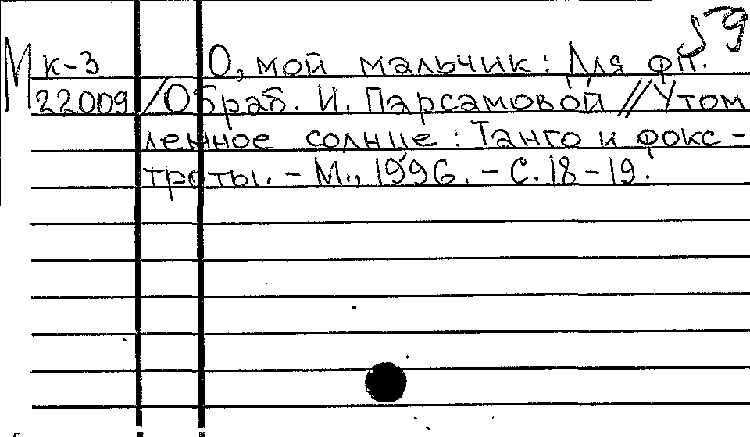 59
М к-3 О, мой мальчик: Для фп.
22009 /Обраб. И. Парсамовой // Утом
ленное солнце: Танго и фокс-
троты. - М., 1996. - С. 18-19.